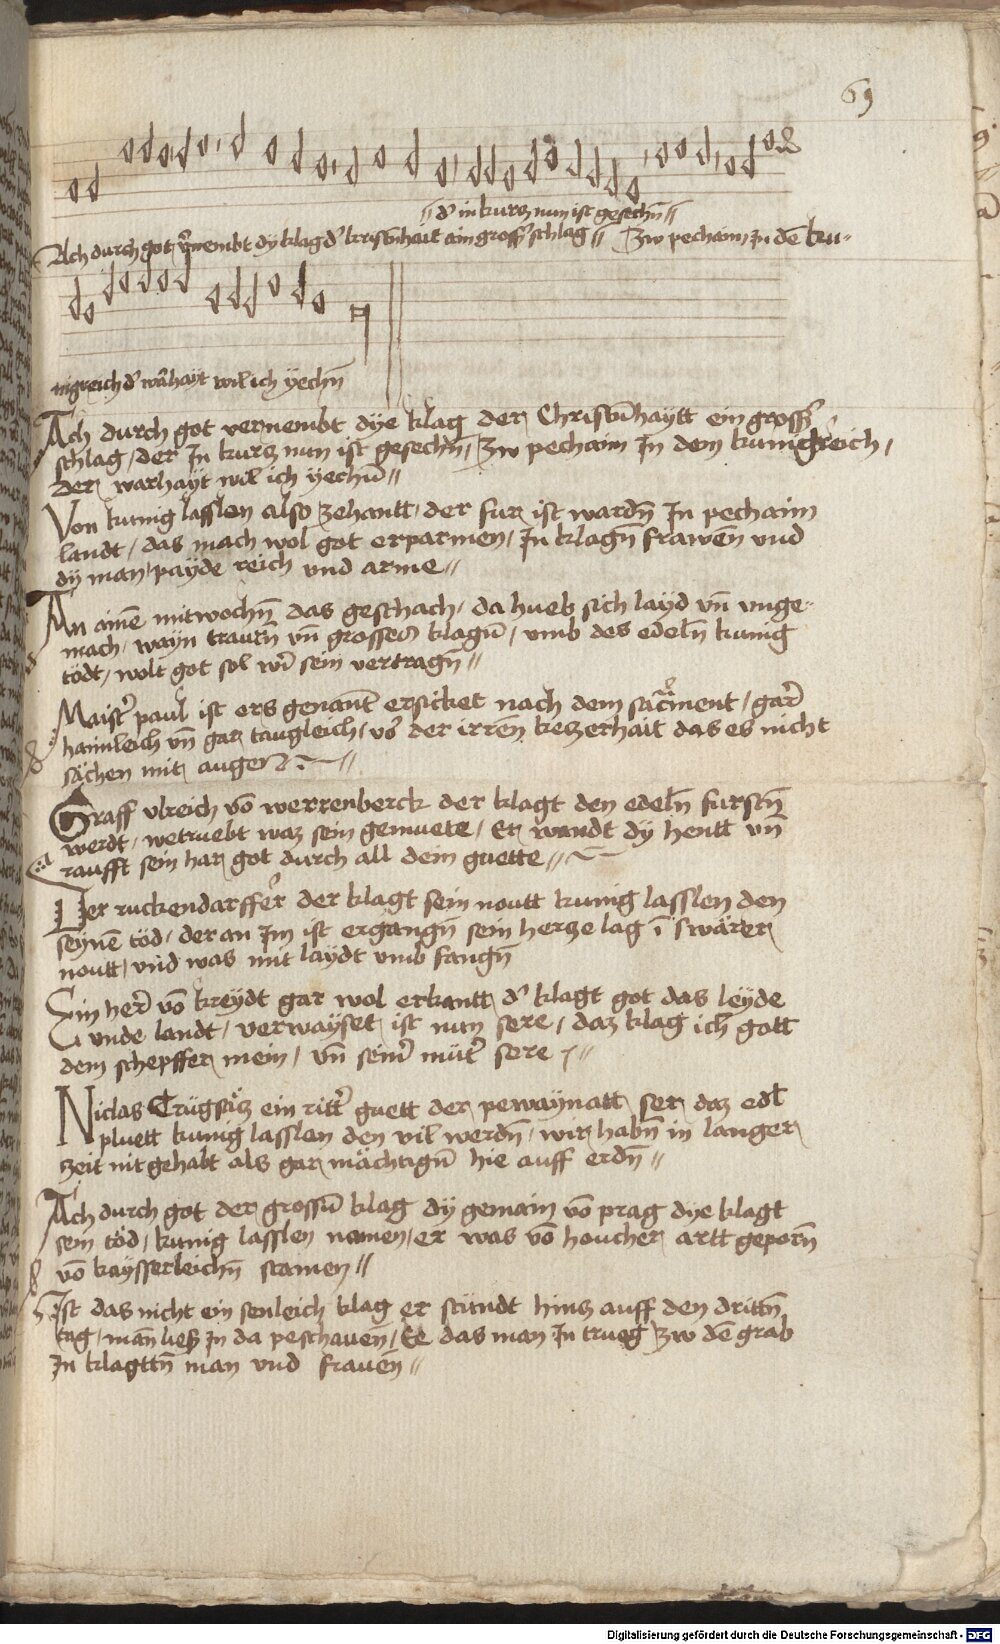 69
// d' in kurcz nun ist gesechñ //
Ach durch got v'nembt dy klag d' kristũhait ain gross' schlag // Zw pechaim In dē ku-
nigreich d' warhayt wil ich ÿechñ
Ach durch got vernembt dÿe klag der Christũhaytt ein gross'
schlag / der In kurcz nun ist gesechñ / Zw pechaim In dem kunigkreich /
der warhayt wil ich yechñ //
Von kunig lasslen also zehantt / der fur ist wardñ In pechaim
landt / das mach wol got erparmen / In klagñ frawen vnd
dÿ man / payde reich vnd arme //
An ainē mitwochñ das geschach / da hueb sich layd vñ vnge-
mach / wayn traurñ vñ grosses klagñ / vmb des edelñ kunig
töd / wolt got sol wir sein vertragñ //
Maist' paul ist ers genant ersicket nach dem sacrament / gar
haimleich vñ gar taugleich / vō der irren keczerhait das es nicht
sächen mit augen //
Graff vlreich vō werrenberck der klagt den edelñ furstñ
werdt / wetruebt waz sein gemuete / Er wandt dy hentt vñ
raufft sein har got durch all dein guette //
Der ruckendarffer der klagt sein noutt kunig lasslen den
seÿnē töd / der an Im ist ergangñ sein hercze lag ī swärer
noutt / vnd was mit laydt vmb fangñ
Ein her vō kreydt gar wol erkantt d' klagt got das leyde
vnde landt / verwayset ist nun sere / daz klag ich gott
dem schepffer mein / vñ sein' müt' sere //
Niclas Trugsäcz ein ritt' guett der pewaynatt ser daz edl
pluett kunig lasslen den vil werdñ / wir habñ in langer
zeit nit gehabt als gar mächtigñ hie auff erdñ //
Ach durch got der grossñ klag dÿ gemain vō prag dye klagt
sein töd / kunig lasslen namen / er was vō houcher artt geporñ
vō kaysserleichñ stamen //
Ist das nicht ein senleich klag er stündt hincz auff den drittñ
tag / man ließ In da peschauen / Ee das man In trueg zw dē grab
In klagttñ man vnd frauen //
Digitalisierung gefördert durch die Deutsche Forschungsgemeinschaft - DFG